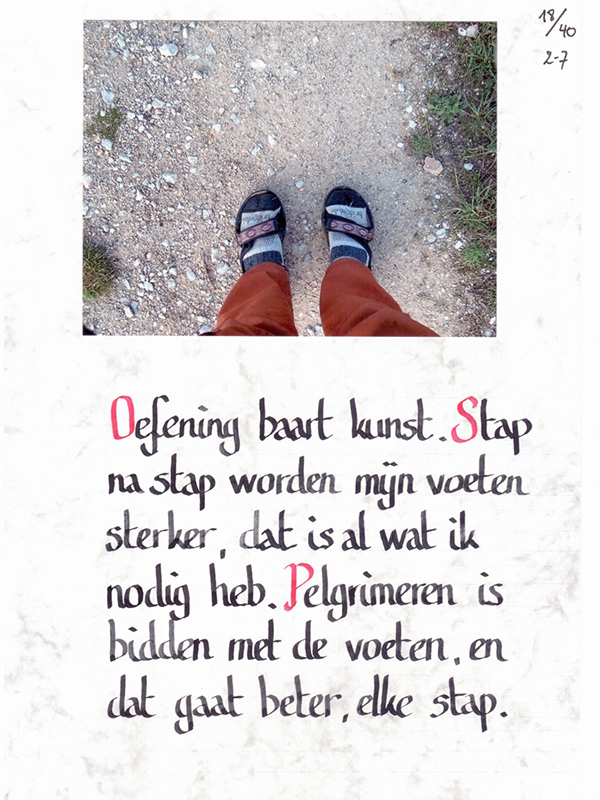 18/40
2-7
Oefening baart kunst. Stap
na stap worden mijn voeten
sterker, dat is al wat ik
nodig heb. Pelgrimeren is
bidden met de voeten, en
dat gaat beter, elke stap.